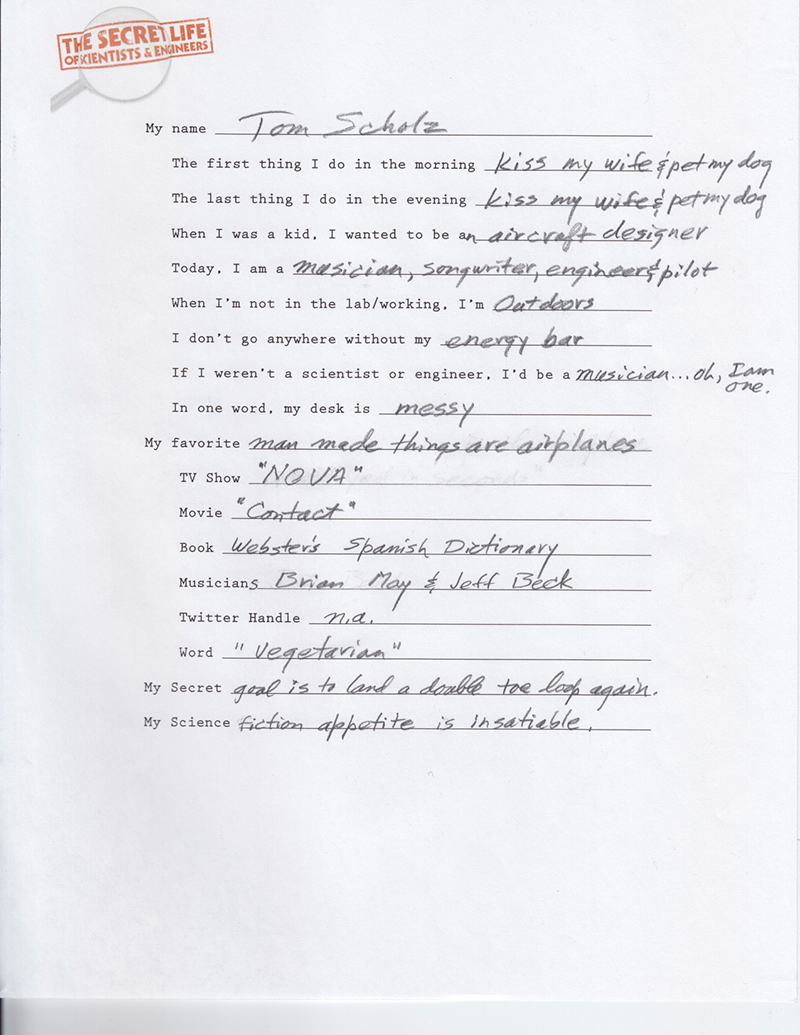 THE SECRET LIFE
OF SCIENTISTS & ENGINEERS
My name Tom Scholz
The first thing I do in the morning kiss my wife & pet my dog
The last thing I do in the evening kiss my wife & pet my dog
When I was a kid, I wanted to be an aircraft designer
Today, I am a musician, songwriter, engineer & pilot
When I'm not in the lab/working, I'm Outdoors
I don't go anywhere without my energy bar
If I weren't a scientist or engineer, I'd be a musician... oh, I am
one.
In one word, my desk is messy
My favorite man made things are airplanes
TV Show "NOVA"
Movie "Contact"
Book Webster's Spanish Dictionary
Musicians Brian May & Jeff Beck
Twitter Handle n.a.
Word "Vegetarian"
My Secret goal is to land a double toe loop again.
My Science fiction appetite is insatiable.